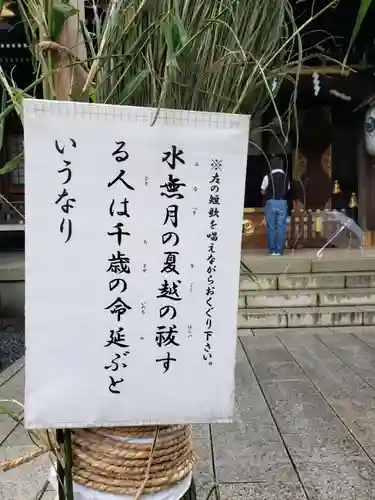 ※左の短歌を唱えながらおくぐり下さい。
水無月の夏越の祓す
る人は千歳の命延ぶと
いうなり